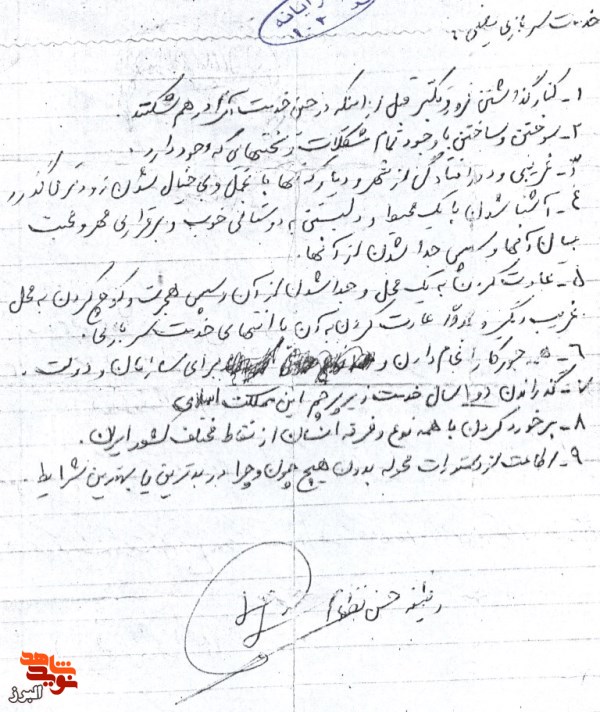 خدمت سربازی یعنی:
۱- کنار گذاشتن غرور و تکبر قبل از اینکه در حین خدمت آنرا در هم شکنند
۲- سوختن و ساختن با وجود تمام مشکلات و سختیهای که وجود دارد.
۳- غریبی و دور افتادگی از شهر و دیار که تنها با تحمل و بی خیال شدن زودتر می گذرد
٤- آشنا شدن با یک محیط و دلبستن به دوستانی خوب و برقراری مهر و محبت
میان آنها و سپس جدا شدن از آنها.
۵- عادت کردن به یک محل و جدا شدن از آن و سپس هجرت و کوچ کردن به محل
غریب دیگر و عادت کردن به آن تا انتهای خدمت سربازی.
۶- همه جور کار انجام دادن و برای سازمان و دولت.
۷- گذراندن دو سال خدمت زیر پرچم این مملکت اسلامی
۸- برخورد کردن با همه نوع و فرقه انسان از نقاط مختلف کشور ایران.
۹- اطاعت از دستورات محوله بدون هیچ چون و چرا در بدترین یا بهترین شرایط.
وظیفه حسن
نوید شاهد
البرز